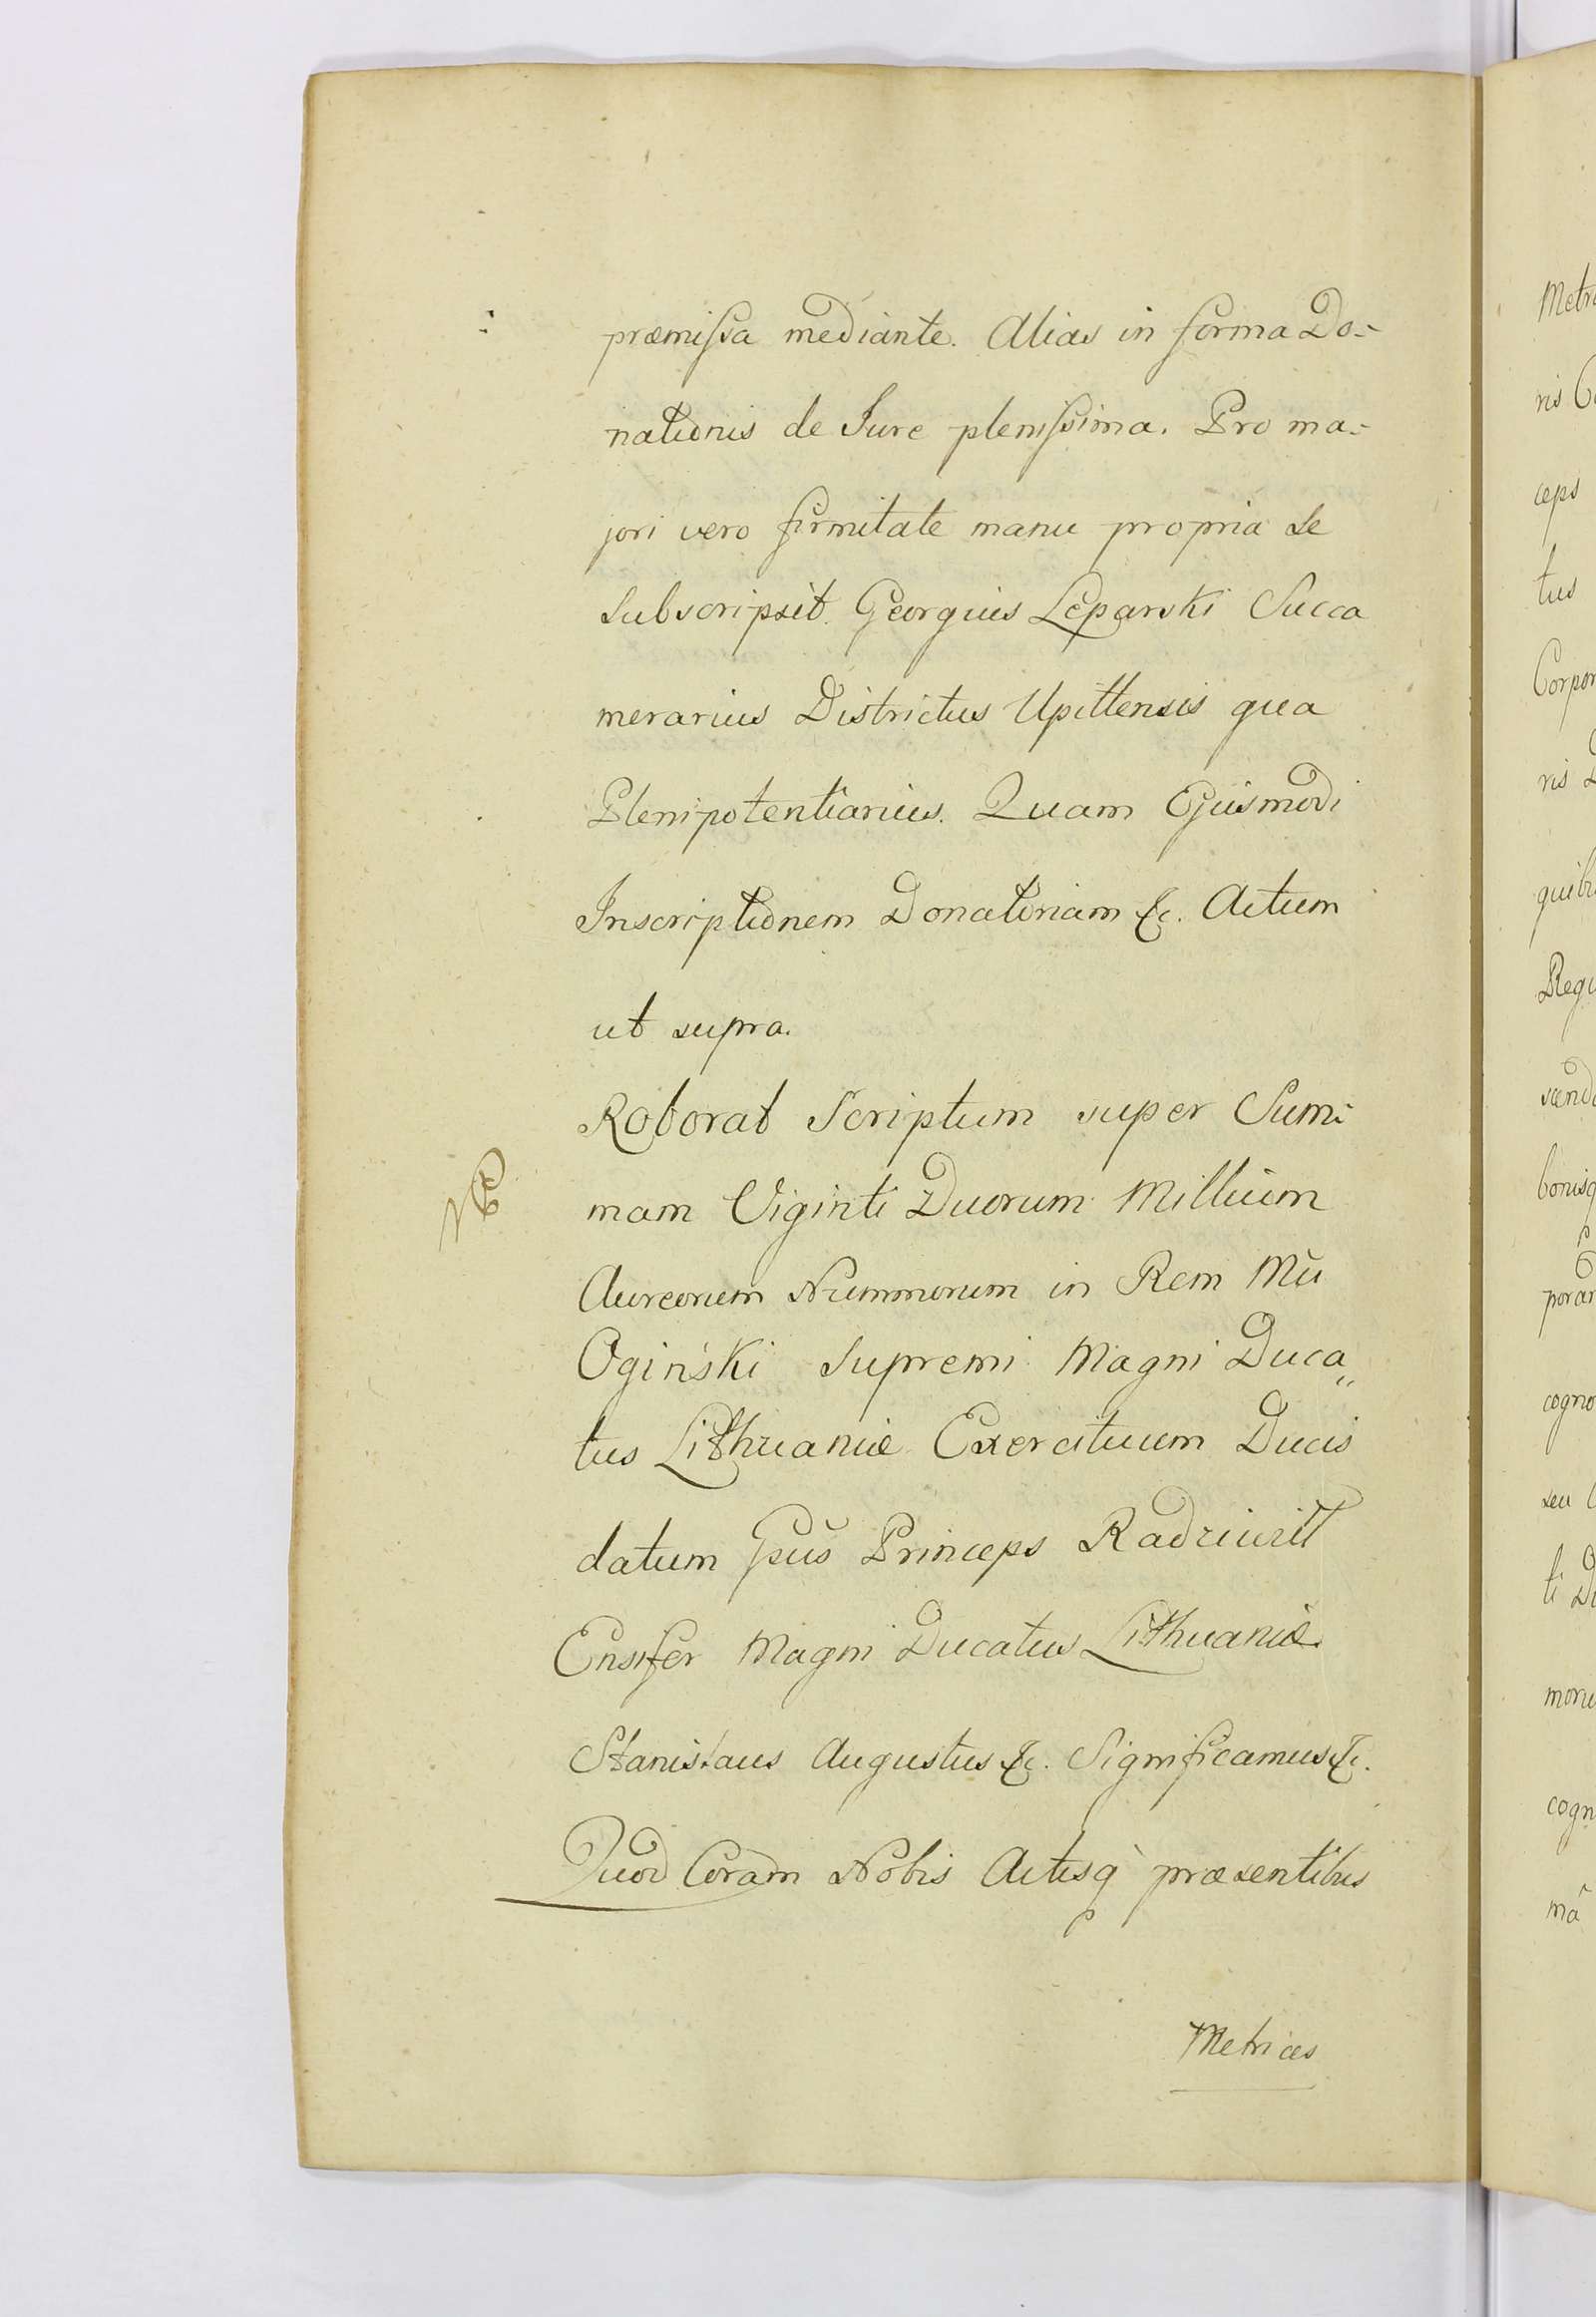 præmissa mediante. Alias in forma Do=
nationis de Jure plenissima. Pro ma=
jori vero firmitate manu propria se
Subscripsit. Georgius Leparski Succa
merarius Districtus Upittensis qua
Plenipotentiarius. Quam Ejusmodi
Inscriptionem Donatoriam &c. Actum
ut supra.
Roborat Scriptum super Sum=
mam Viginti Duorum Millium
Aureorum Nummorum in Rem Mci
Ogiński Supremi Magni Duca„
tus Lithuaniæ Exercituum Ducis
datum Gsus Princeps Radziwiłł
Ensifer Magni Ducatus Lithuaniæ
Stanislaus Augustus &c. Significamus &c.
Quod Coram Nobis Actisq̀ præsentibus
Metrices
Metr
ris C
ceps
tus
Corpor
ris
quib
Reg
bonisq
porar
cogno
seu
ti D
cogn
mâ